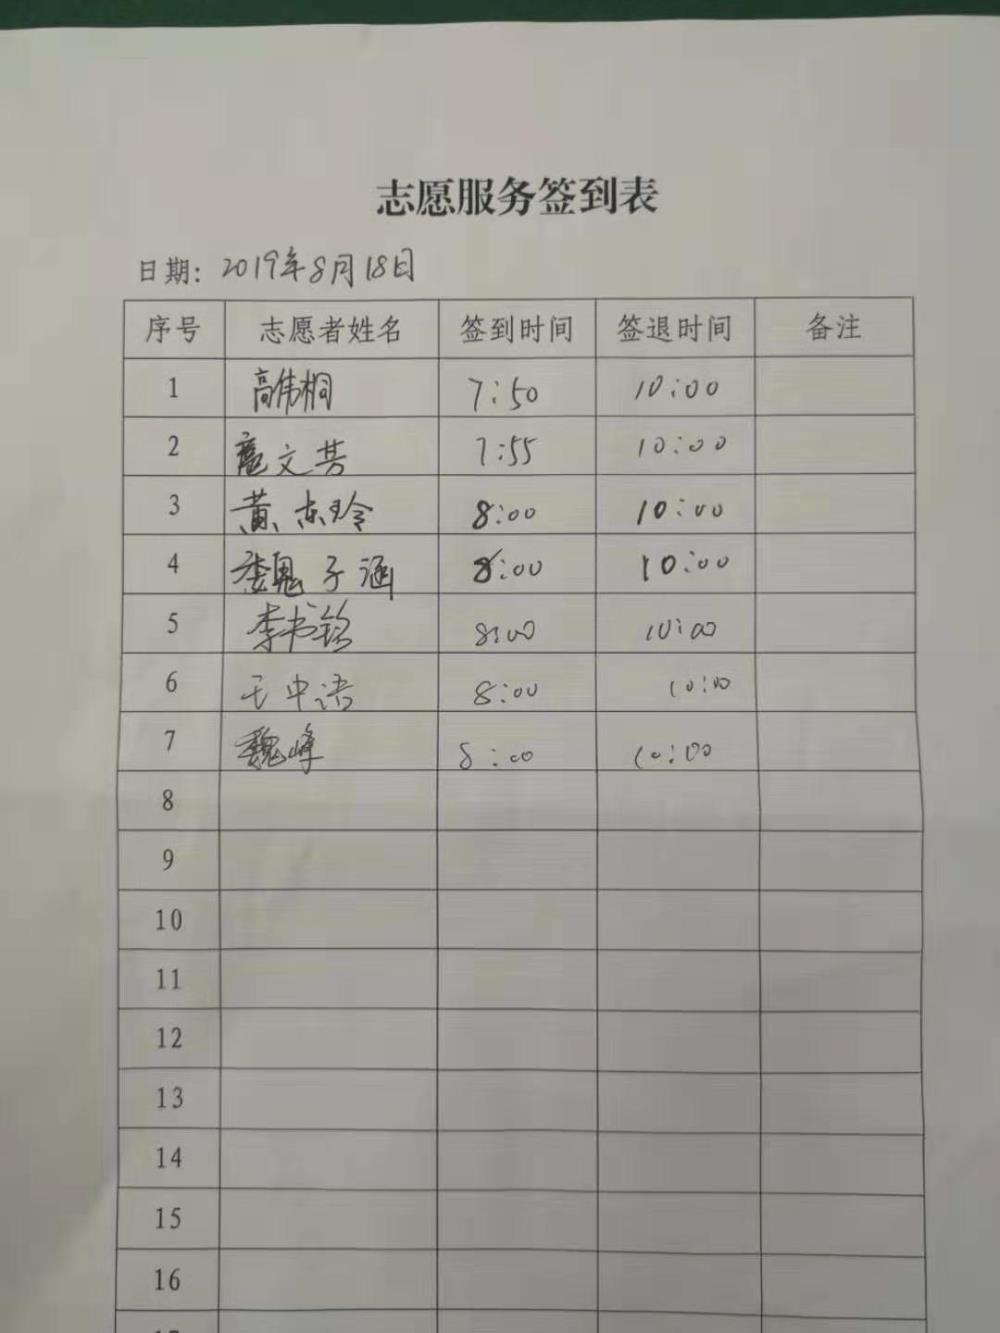 志愿服务签到表
日期: 2019年8月18日
序号 志愿者姓名 签到时间 签退时间 备注
1 高伟桐 7:50 10:00
2 文芳 7:55 10:00
3 黄志玲 8:00 10:00
4 魏子涵 8:00 10:00
5 李书铭 8:00 10:00
6 王中语 8:00 10:00
7 魏峰 8:00 10:00
8
9
10
11
12
13
14
15
16